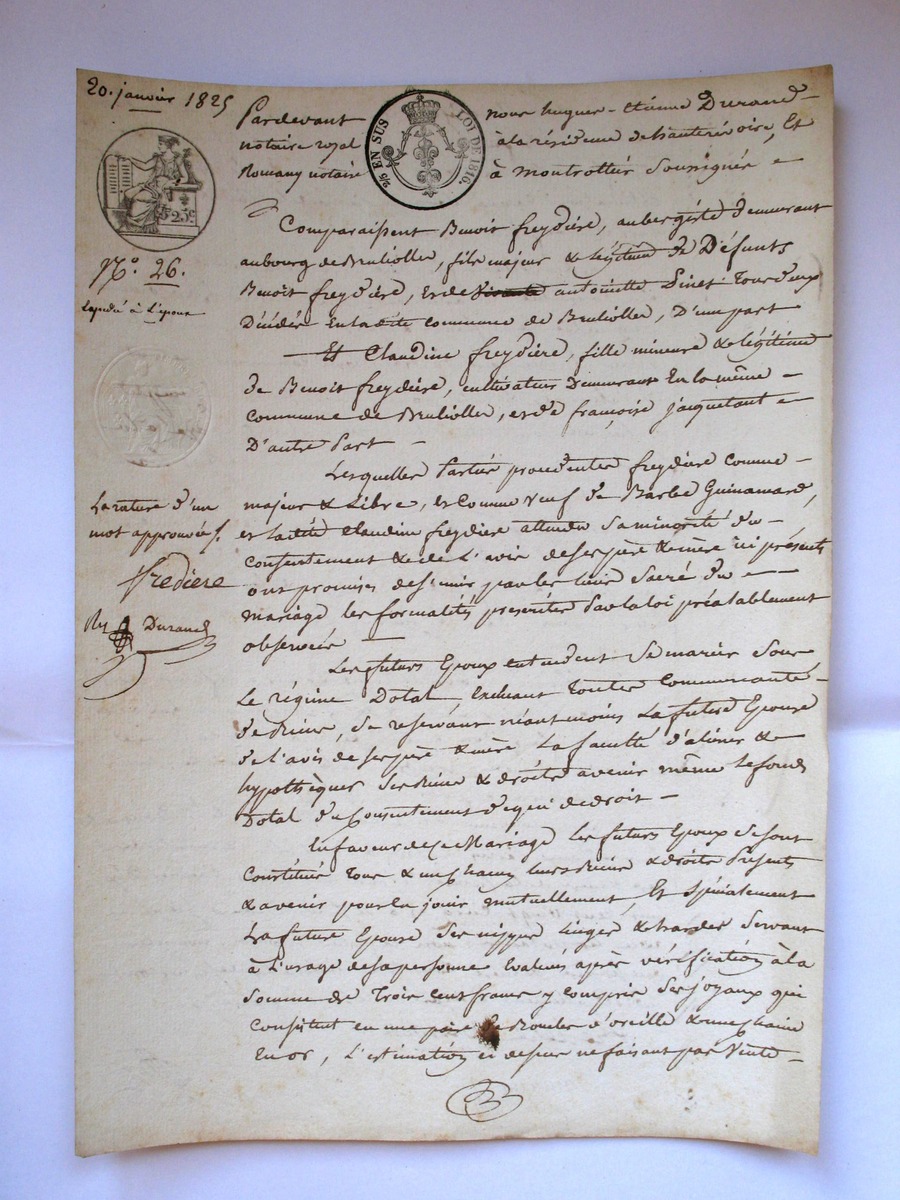 20. janvier 1825
Pardevant nous hugues-Etienne Durand
notaire royal à la résidence de hauterivoire, Et
Romany notaire à Montrottier soussignés
2/5 EN SUS
LOI DE 1816.
525c
N.o 26.
Expédié à l'époux
Comparaissent Benoit freydière, aubergiste demeurant
au bourg de Brullioller, fils majeur & légitime de Défunts
Benoit freydière, et de vivante antoinette Pinet Tous deux
Décédés En la dite commune de Brullioller, D'une part
Et Claudine freydière, fille mineure & légitime
de Benoit freydière, cultivateur demeurant En la même
Commune de Brullioller, et de françoise jacquetant
D'autre Part
Lesquelles Parties procédantes freydière comme
majeur & Libre, et comme veuf de Barbe Guinamard,
et La dite Claudine freydière attendu sa minorité du
consentement & de L'avis de ses père & mère ici présents
ont promis de s'unir par les liens Sacré du
mariage les formalités prescrites Par la loi préalablement
observées
La rature d'un
mot approuvée f.
fredière
Ry Durand
Les futurs Epoux entendent se marier sous
Le régime Dotal Excluant toutes Communauté
de Biens, se reservant néantmoins La future Epouse
de l'avis de ses père & mère La faculté d'aliéner &
hypothèquer ses Biens & droits avenir même le fond
Dotal du Consentement de qui de droit
En faveur de Ce Mariage les futurs Epoux se sont
Constitués Tous & un Chacun leurs Biens & droits Présents
& avenir pour En jouir mutuellement, Et spécialement
La future Epouse Ses nippes Linges & hardes Servant
à L'usage de sa personne Evalués après vérification à la
Somme de Trois Cent francs y compris Ses joyaux qui
Consistent en une paire de Boucles d'oreille & une Chaine
En or, L'estimation ci dessus ne faisant pas Vente